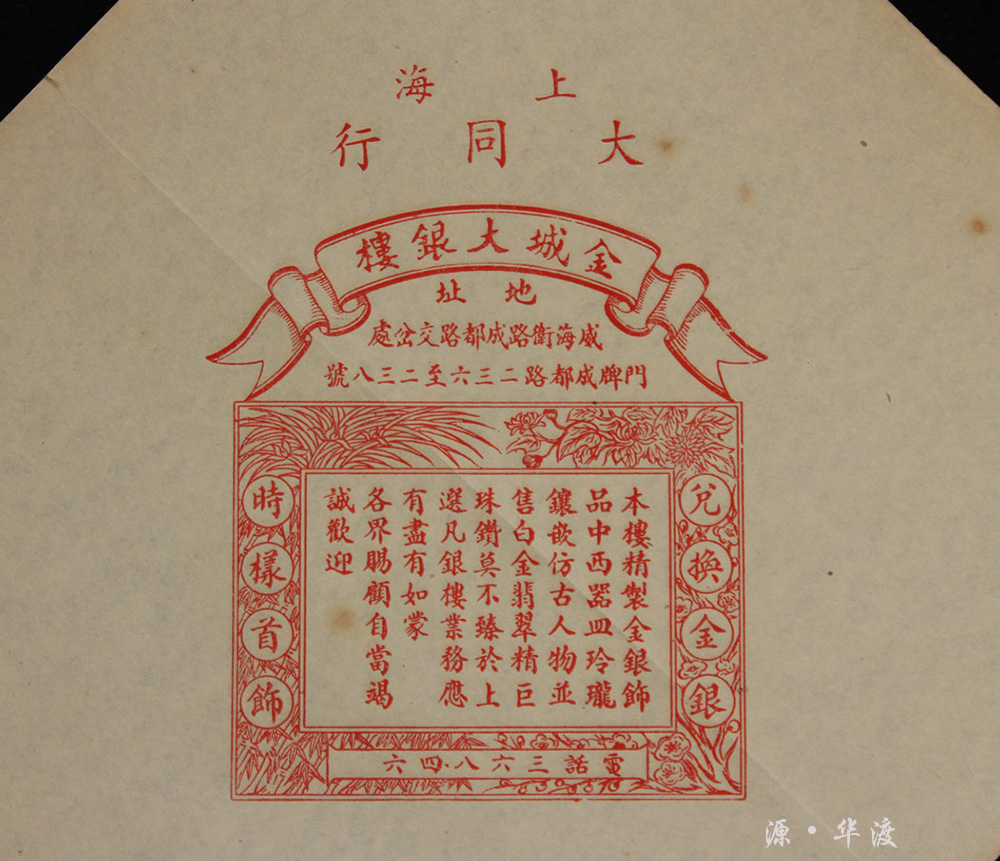 上海
大同行
金城大銀樓
地址
威海衛路成都路交岔處
門牌成都路二三六至二三八號
兌換金銀
本樓精製金銀飾
品中西器皿玲瓏
鑲嵌仿古人物並
售白金翡翠精巨
珠鑽莫不臻於上
選凡銀樓業務應
有盡有如蒙
各界賜顧自當竭
誠歡迎
時樣首飾
電話三六八四六
源·华渡